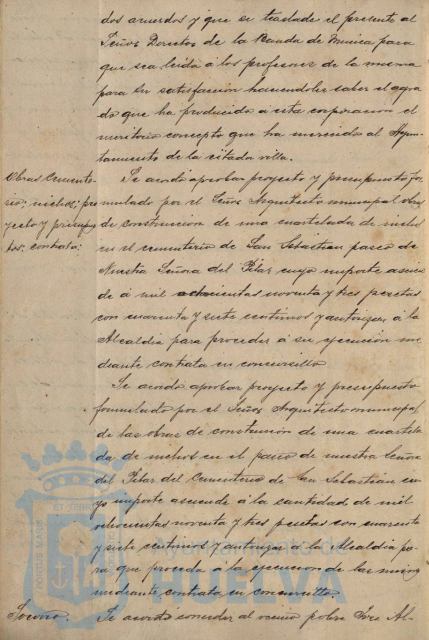 dos acuerdos y que se traslade el presente al
Señor Director de la Banda de Musica para
que sea leida á los profesores de la misma
para su satisfacción haciendoles saber el agra-
do que ha producido á esta corporacion el
meritorio concepto que ha merecido al Ayun-
tamiento de la citada villa.
Obras Cemente-
rio; nichos; pro
yecto y presupues
tos; contrata:
Se acordó aprobar proyecto y presupuesto for
mulado por el Señor Arquitecto municipal obras
de construccion de una cuartelada de nichos
en el cementerio de San Sebastian paseo de
Nuestra Señora del Pilar cuyo importe ascien
de á mil ochocientas noventa y tres pesetas
con cuarenta y siete centimos y autorizar á la
Alcaldia para proceder á su ejecución me
diante contrata en concursillo
Se acordó aprobar proyecto y presupuesto
formulado por el Señor Arquitecto municipal
de las obras de construccion de una cuartela
da de nichos en el paseo de nuestra Señora
del Pilar del Cementerio de San Sebastian cu
yo importe asciende á la cantidad de mil
ochocientas noventa y tres pesetas con cuarenta
y siete centimos y autorizar á la Alcaldia pa
ra que proceda á la ejecucion de las mismas
mediante contrata en concursillo
Socorro.
Se acordó conceder al vecino pobre José Al-
Ayuntamiento de
HUELVA